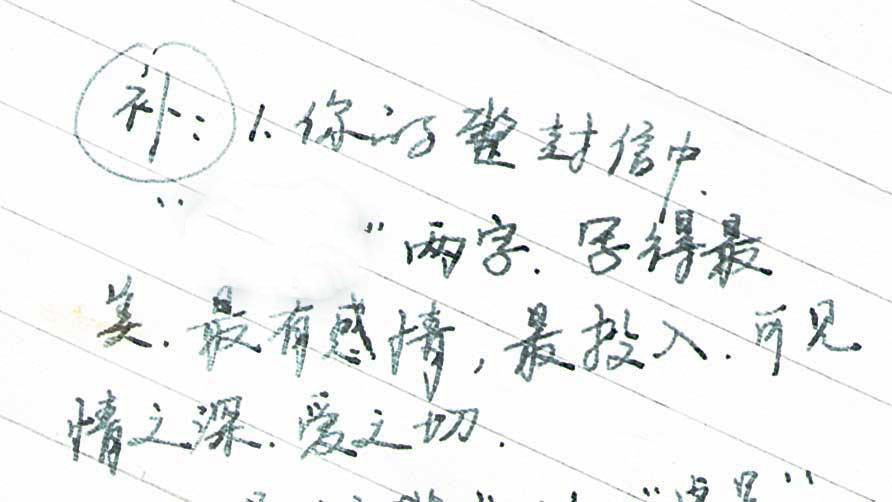 补：1.你的整封信中.
“ ”两字.写得最
美.最有感情,最投入.可见
情之深.爱之切.